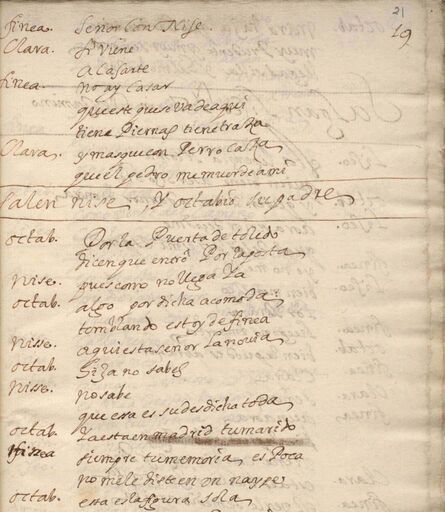 21
19
finea. Señor con Nise.
Clara. Si viene
A Casarte
finea. no ay Casar
que este que se va de aqui
tiene Piernas tiene traza
Clara. y mas que con Perro caza
que el pedro me muerde a mi
Salen nise, Y octabio su padre
octab. Por la Puerta de toledo
dicen que entro Por la posta
nise. pues como no llega ya
octab. algo por dicha acomoda
temblando estoy de finea
nisse. aqui esta señor la novia
octab. hija no sabes
nisse. no sabe
que esa es su desdicha toda
octab. Ya esta en madrid tu marido
finea siempre tu memoria es Poca
no me le diste en un naype
octab. esta es la figura sola